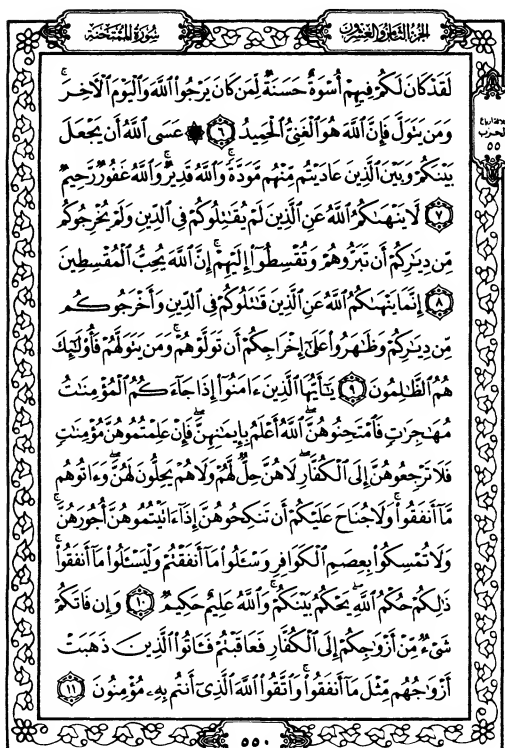 سُورَةُ المُمْتَحنَة
الجُزْءُ الثَّامِنُ وَالعِشْرُونَ
لَقَدْ كَانَ لَكُمْ فِيهِمْ أُسْوَةٌ حَسَنَةٌ لِّمَن كَانَ يَرْجُوا۟ ٱللَّهَ وَٱلْيَوْمَ ٱلْآخِرَ ۚ
وَمَن يَتَوَلَّ فَإِنَّ ٱللَّهَ هُوَ ٱلْغَنِىُّ ٱلْحَمِيدُ ٦ ۞ عَسَى ٱللَّهُ أَن يَجْعَلَ
بَيْنَكُمْ وَبَيْنَ ٱلَّذِينَ عَادَيْتُم مِّنْهُم مَّوَدَّةً ۚ وَٱللَّهُ قَدِيرٌ ۚ وَٱللَّهُ غَفُورٌ رَّحِيمٌ
٧ لَّا يَنْهَىٰكُمُ ٱللَّهُ عَنِ ٱلَّذِينَ لَمْ يُقَـٰتِلُوكُمْ فِى ٱلدِّينِ وَلَمْ يُخْرِجُوكُم
مِّن دِيَـٰرِكُمْ أَن تَبَرُّوهُمْ وَتُقْسِطُوٓا۟ إِلَيْهِمْ ۚ إِنَّ ٱللَّهَ يُحِبُّ ٱلْمُقْسِطِينَ
٨ إِنَّمَا يَنْهَىٰكُمُ ٱللَّهُ عَنِ ٱلَّذِينَ قَـٰتَلُوكُمْ فِى ٱلدِّينِ وَأَخْرَجُوكُم
مِّن دِيَـٰرِكُمْ وَظَـٰهَرُوا۟ عَلَىٰٓ إِخْرَاجِكُمْ أَن تَوَلَّوْهُمْ ۚ وَمَن يَتَوَلَّهُمْ فَأُو۟لَـٰٓئِكَ
هُمُ ٱلظَّـٰلِمُونَ ٩ يَـٰٓأَيُّهَا ٱلَّذِينَ ءَامَنُوٓا۟ إِذَا جَآءَكُمُ ٱلْمُؤْمِنَـٰتُ
مُهَـٰجِرَٰتٍ فَٱمْتَحِنُوهُنَّ ۖ ٱللَّهُ أَعْلَمُ بِإِيمَـٰنِهِنَّ ۖ فَإِنْ عَلِمْتُمُوهُنَّ مُؤْمِنَـٰتٍ
فَلَا تَرْجِعُوهُنَّ إِلَى ٱلْكُفَّارِ ۖ لَا هُنَّ حِلٌّ لَّهُمْ وَلَا هُمْ يَحِلُّونَ لَهُنَّ ۖ وَءَاتُوهُم
مَّآ أَنفَقُوا۟ ۚ وَلَا جُنَاحَ عَلَيْكُمْ أَن تَنكِحُوهُنَّ إِذَآ ءَاتَيْتُمُوهُنَّ أُجُورَهُنَّ ۚ
وَلَا تُمْسِكُوا۟ بِعِصَمِ ٱلْكَوَافِرِ وَسْـَٔلُوا۟ مَآ أَنفَقْتُمْ وَلْيَسْـَٔلُوا۟ مَآ أَنفَقُوا۟ ۚ
ذَٰلِكُمْ حُكْمُ ٱللَّهِ ۖ يَحْكُمُ بَيْنَكُمْ ۚ وَٱللَّهُ عَلِيمٌ حَكِيمٌ ١٠ وَإِن فَاتَكُمْ
شَىْءٌ مِّنْ أَزْوَٰجِكُمْ إِلَى ٱلْكُفَّارِ فَعَاقَبْتُمْ فَـَٔاتُوا۟ ٱلَّذِينَ ذَهَبَتْ
أَزْوَٰجُهُم مِّثْلَ مَآ أَنفَقُوا۟ ۚ وَٱتَّقُوا۟ ٱللَّهَ ٱلَّذِىٓ أَنتُم بِهِۦ مُؤْمِنُونَ ١١
الحِزب
٥٥
٥٥٠